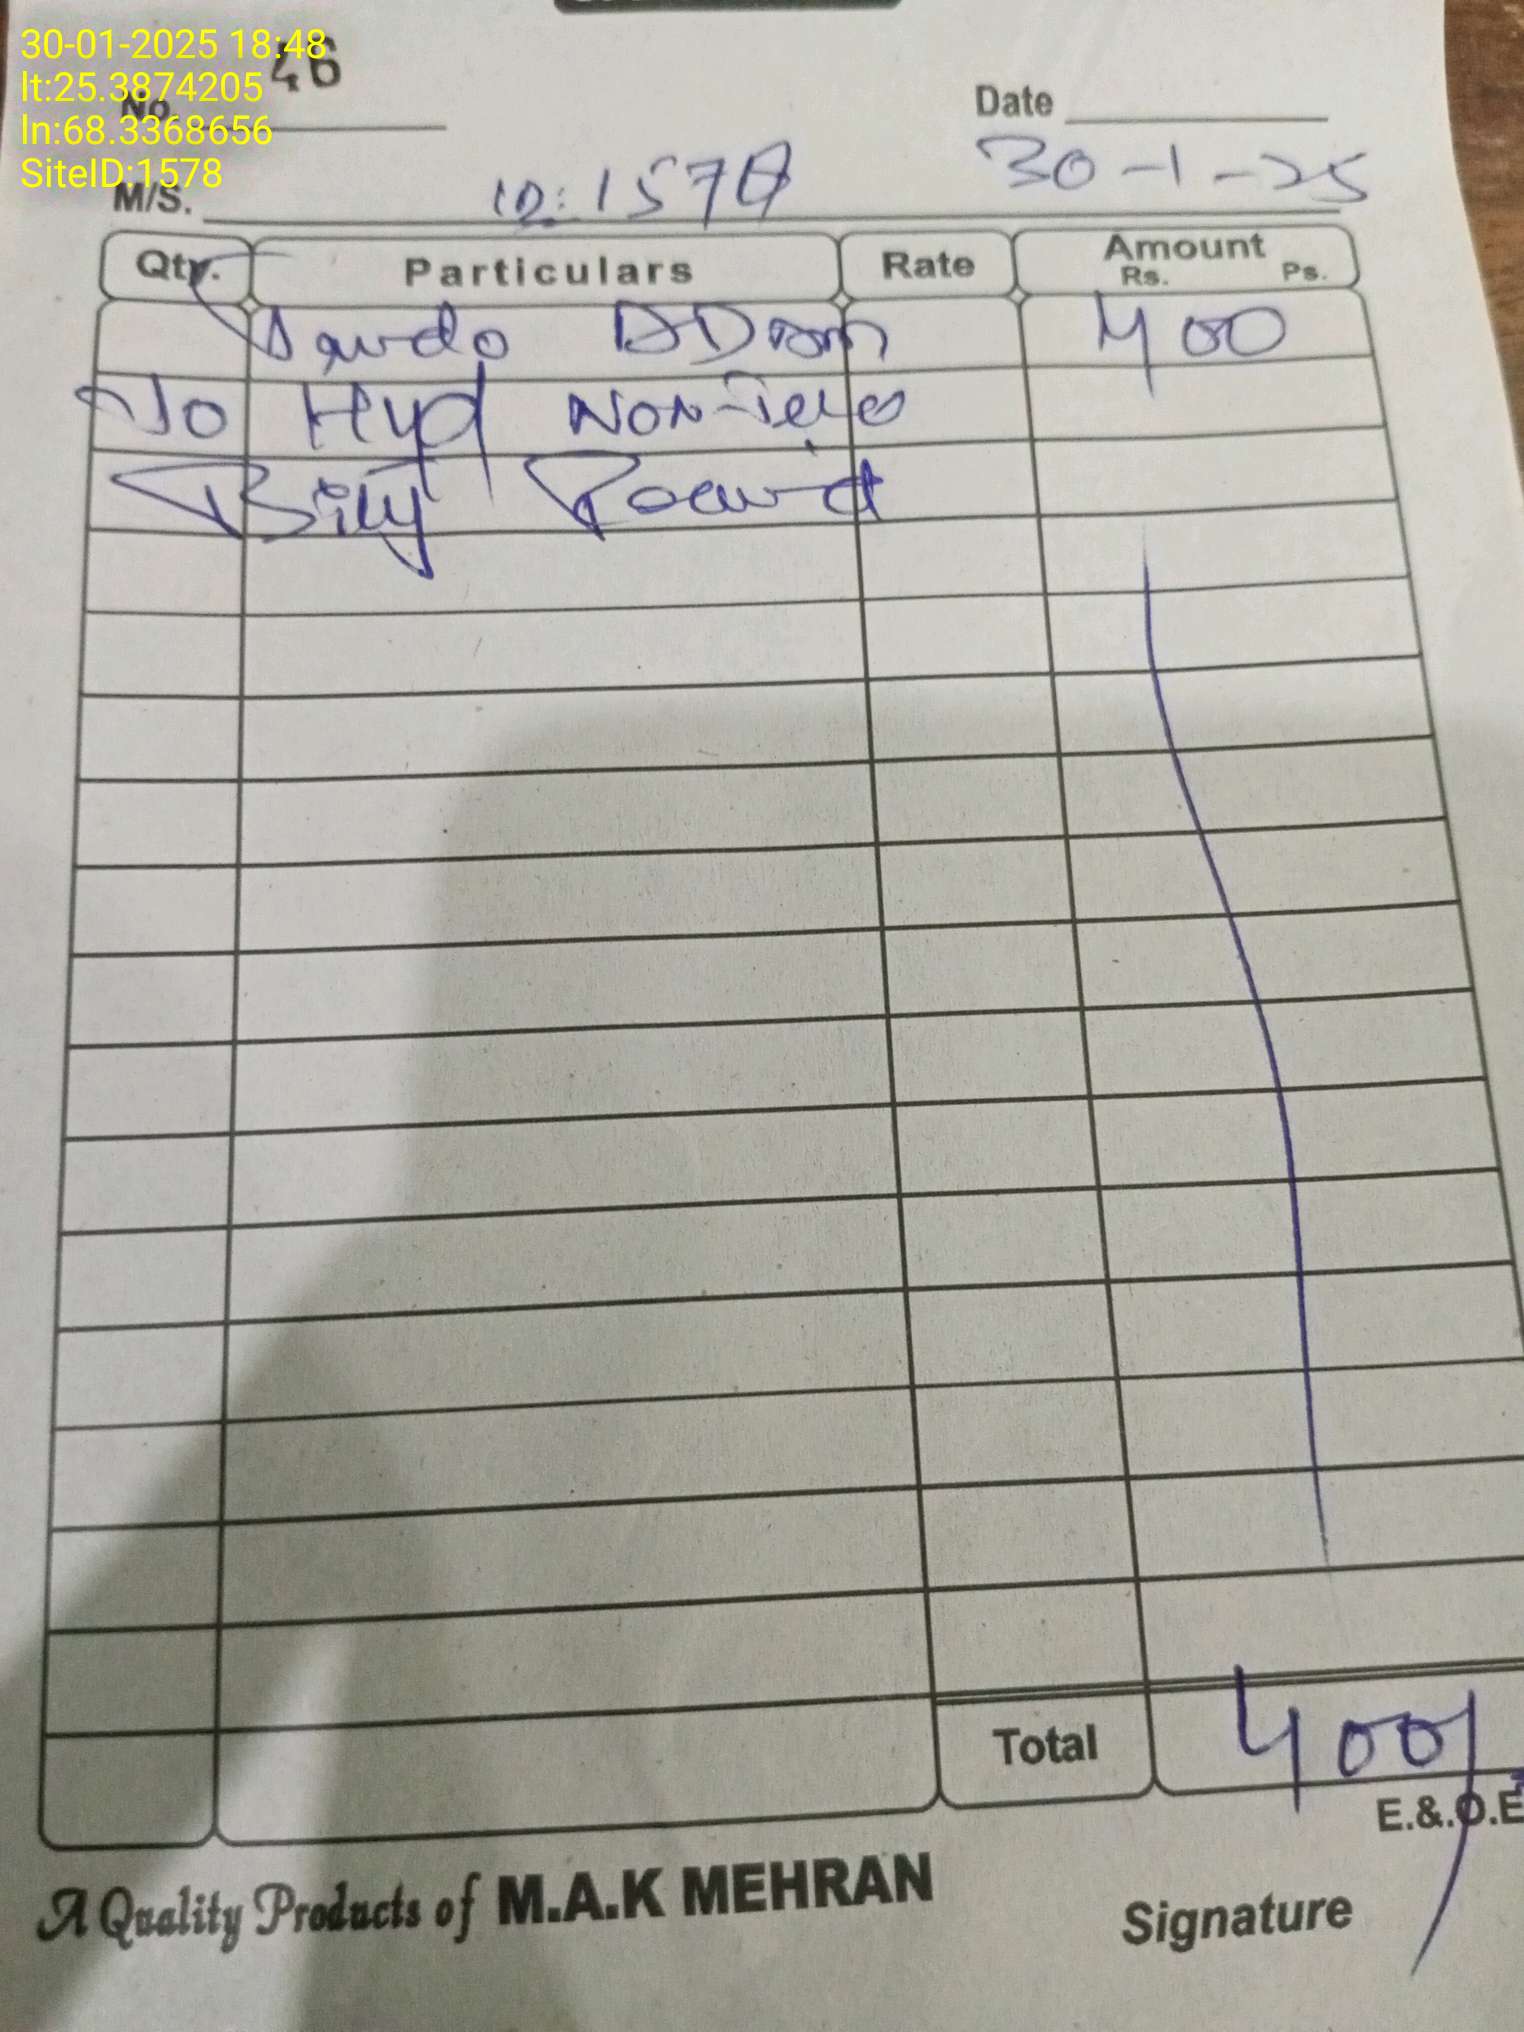 30-01-2025 18:48
lt:25.3874205
ln:68.3368656
SiteID:1578
46
No.
Date
30-1-25
M/S.
ID: 1578
Qty. Particulars Rate Amount
Rs. Ps.
400
To Hyd Non-
Total 400/
E.&.O.E
A Quality Products of M.A.K MEHRAN
Signature